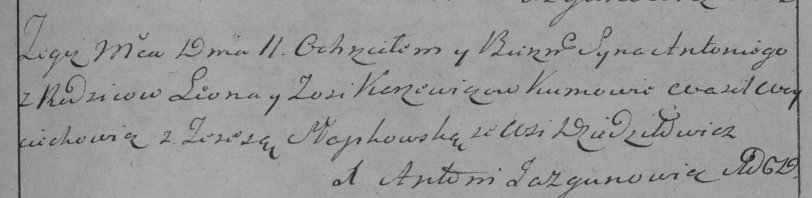 Tegoż Mca Dnia 11. Ochrzciłem y Bierzm. Syna Antoniego
z Rodzicow Leona y Zosi Karzewiczow Kumowie Wasil Woy
ciechowicz z Teresą Mapkowską ze Wsi Dziedziłowicz
X Antoni Jazgunowicz